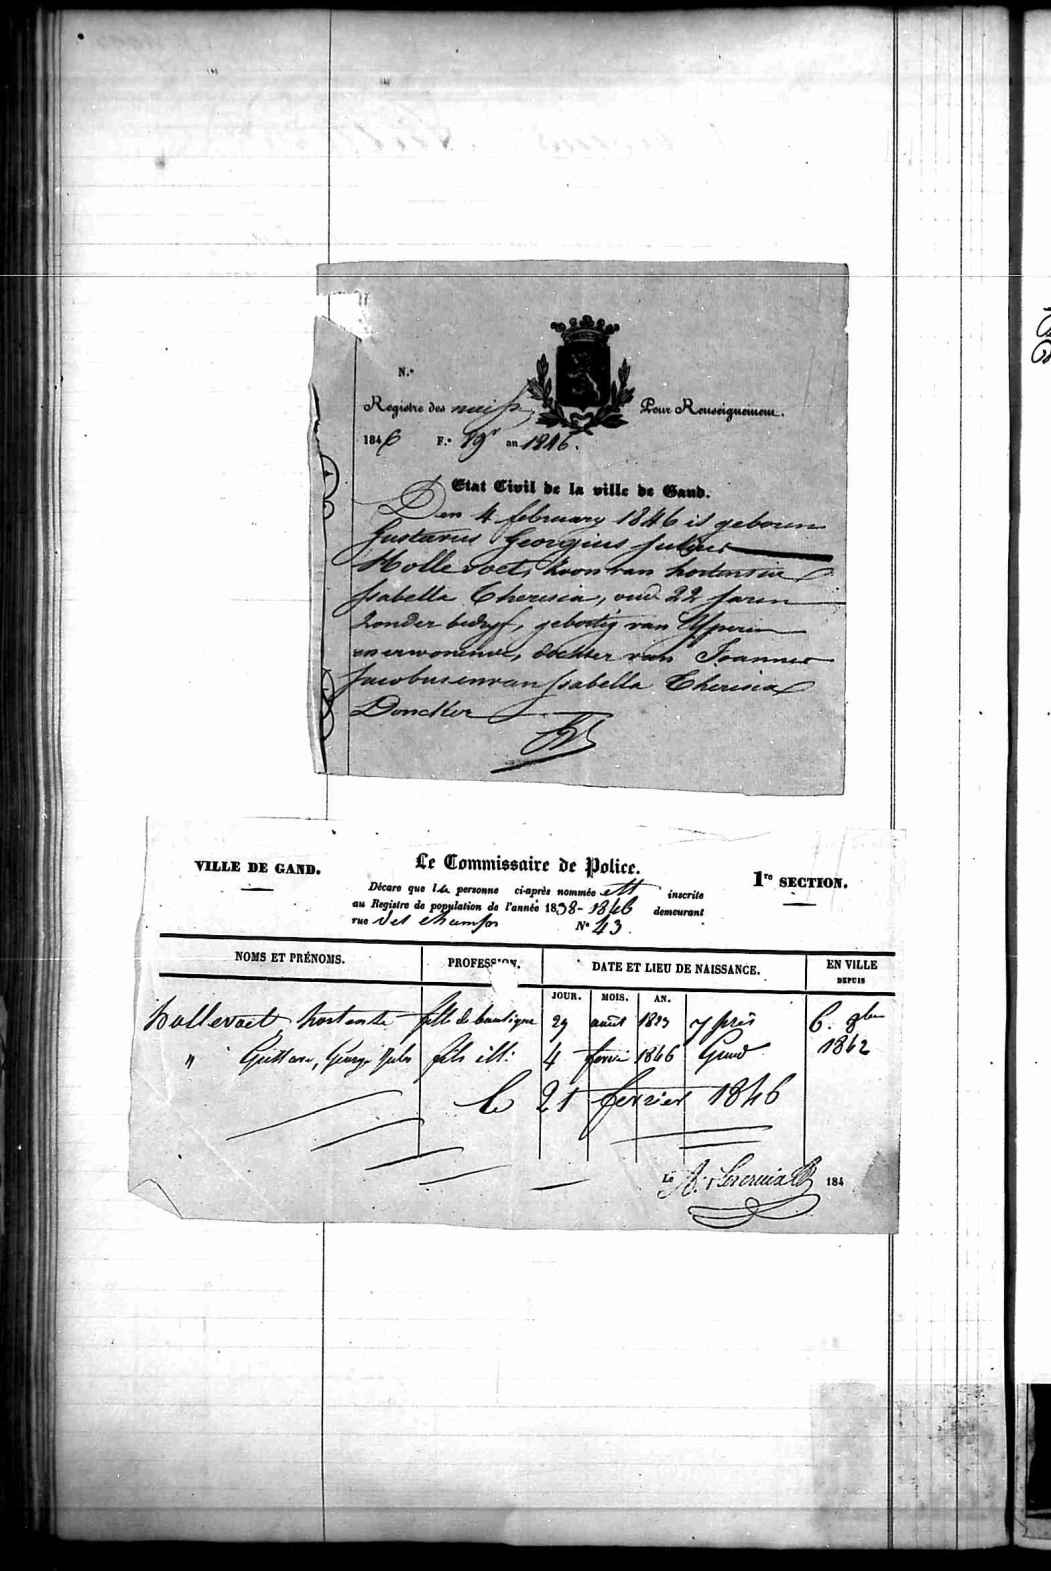 N.º
Registre des naiss Pour Renseignement.
1846 F.º 19r an 1846.
Etat Civil de la ville de Gand.
Den 4 february 1846 is geboren
Gustavus Georgius Julius
Hollevoet, zoon van hortensia
Isabella Theresia, oud 22 jaren
zonder bedryf, gebortig van Yperen
en er wonende, dochter van Joannes
Jacobus en van Isabella Theresia
Donckor
VILLE DE GAND.
Le Commissaire de Police.
1re SECTION.
Déclare que la personne ci-après nommée est inscrite
au Registre de population de l'année 1838-1846 demeurant
rue des champs Nº 43
NOMS ET PRÉNOMS. PROFESSION. DATE ET LIEU DE NAISSANCE. EN VILLE DEPUIS
JOUR. MOIS. AN.
Hollevoet, hortense fille de boutique 29 août 1823 ypres 6. 8bre
" Gustave, George Jules fils ill: 4 fevrie 1846 Gand 1842
le 21 fevrier 1846
Le 184